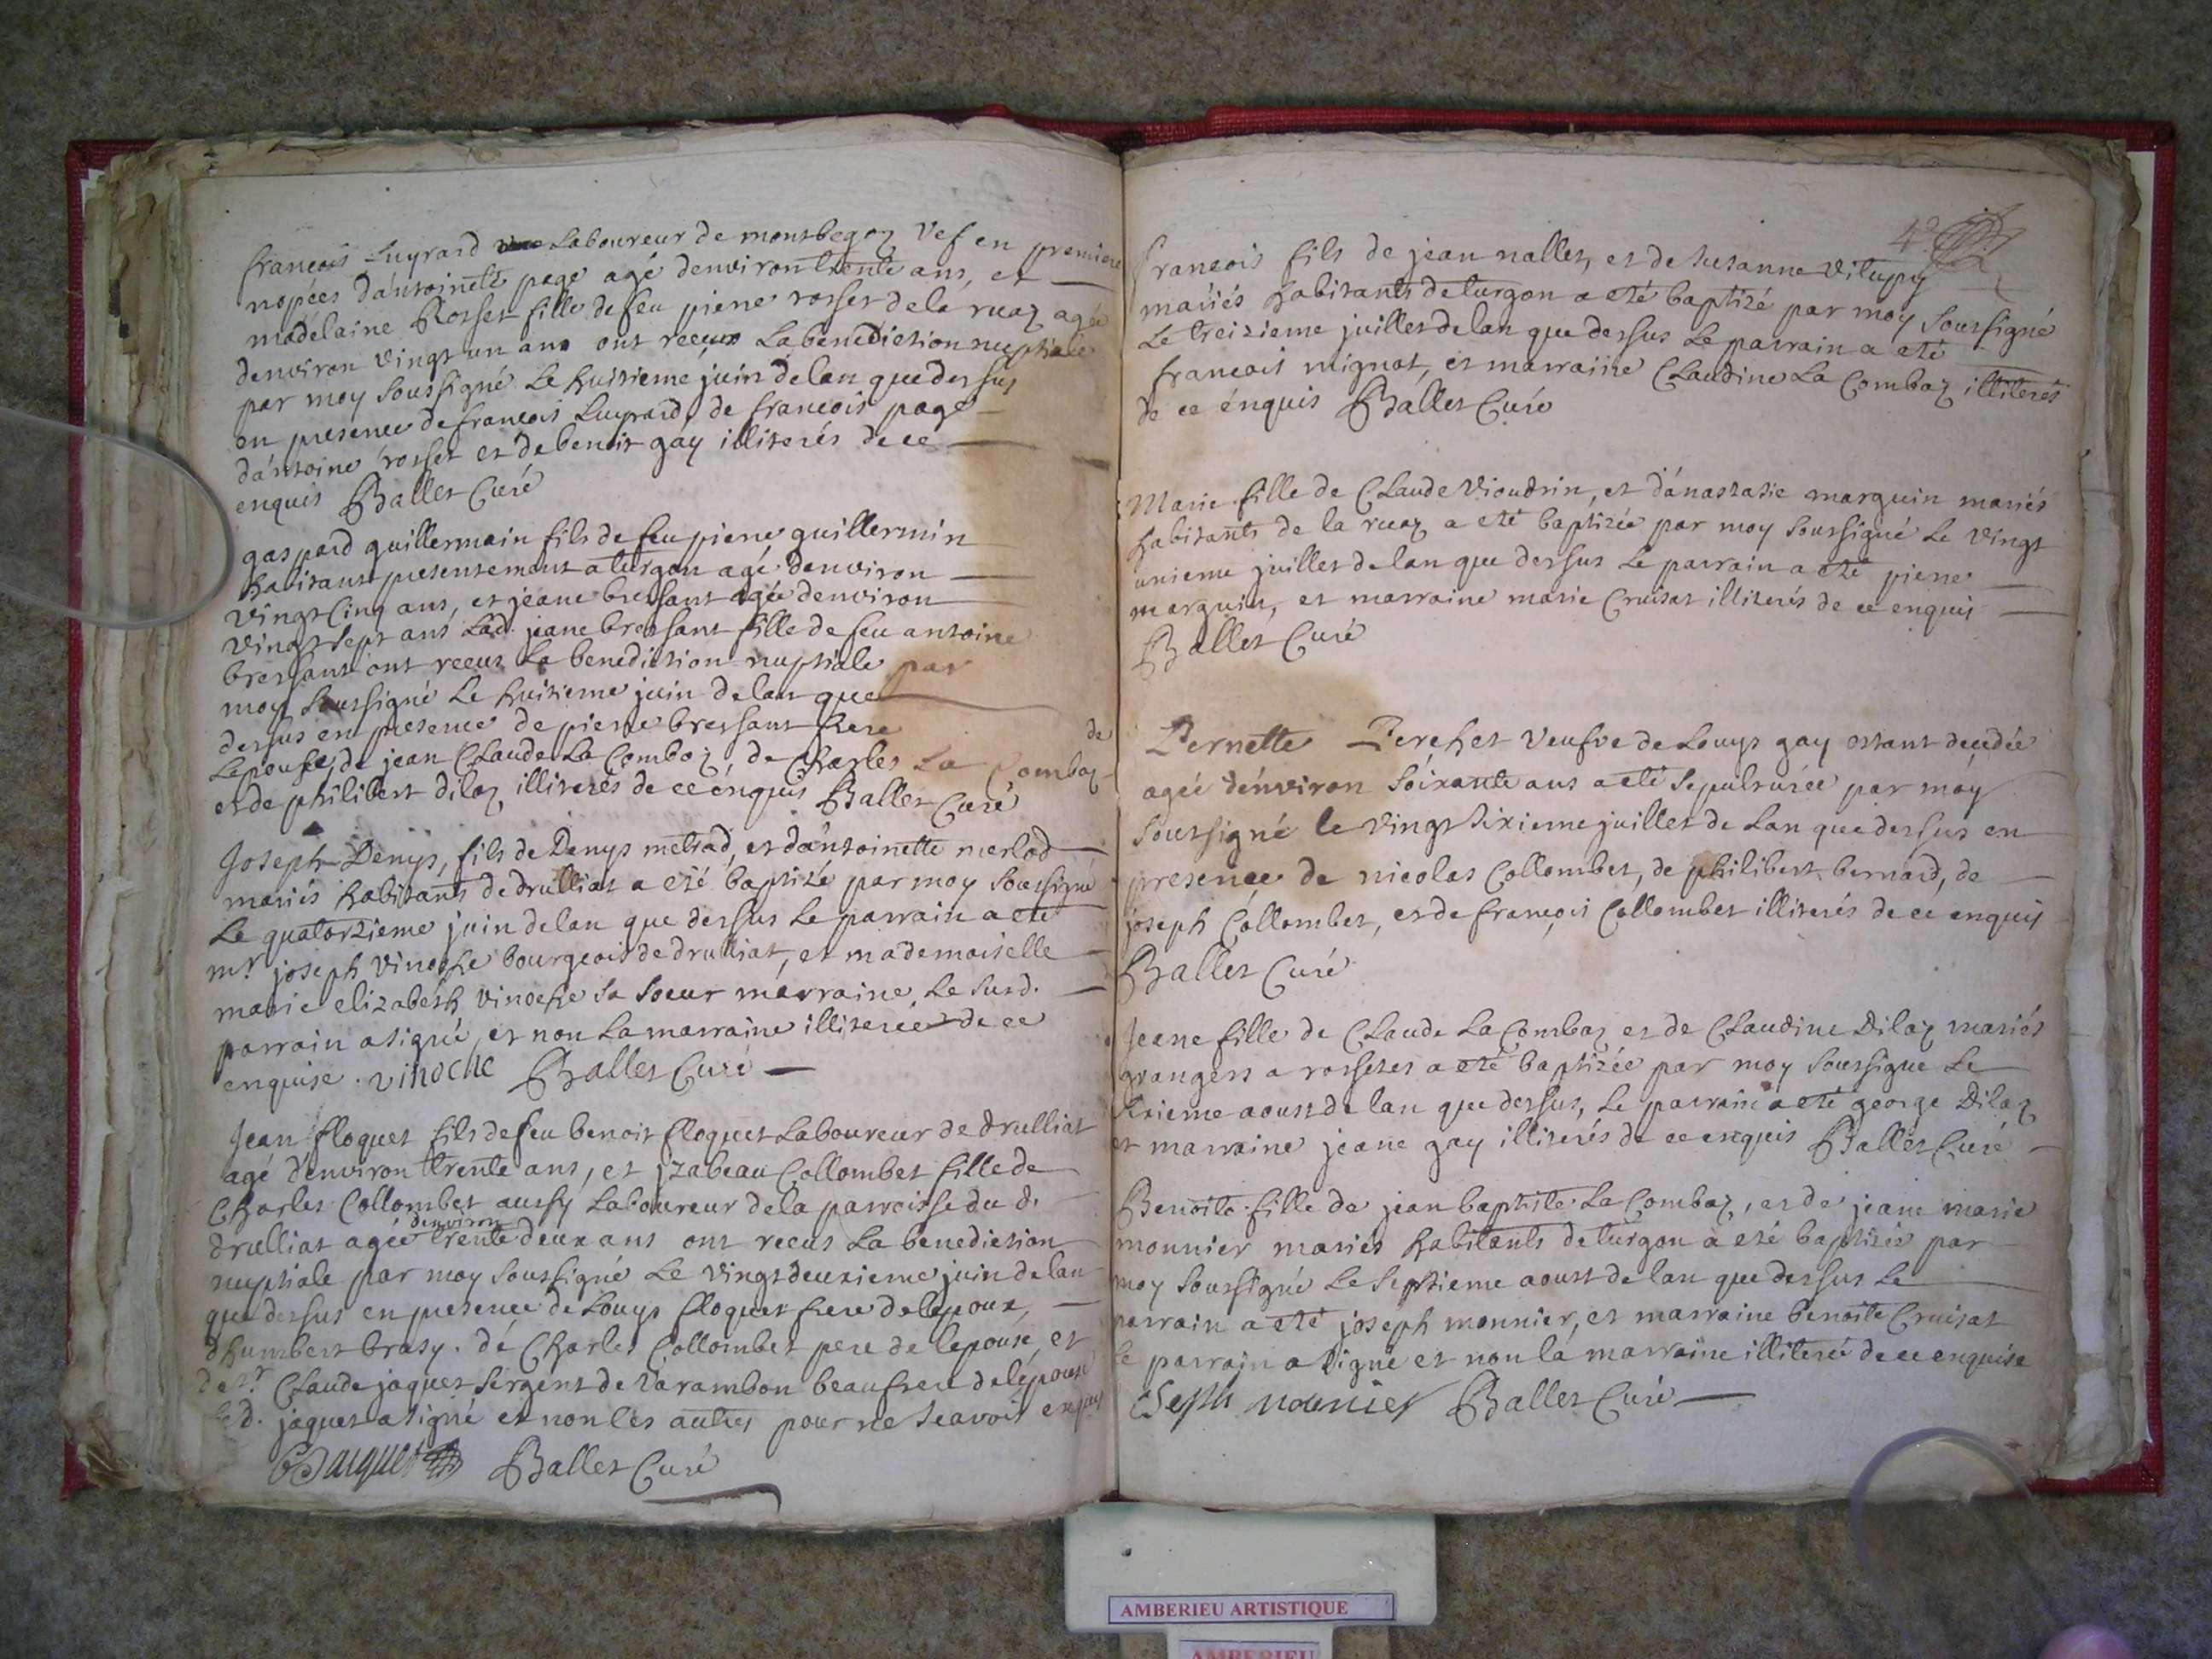 francois Luyrard Laboureur de montbegoz Vef en premiere
nopces dántoinete page agé denviron trente ans, et
madelaine Rosset fille de feu pierre rosset de la ruaz agée
denviron vingt un ans ont receux La benediction nuptiale
par moy soussigné Le huitieme juin de lan que dessus
en presence de francois Luyrard, de francois page
dántoine rosset et de benoit gáy illiterés de ce
enquis Ballet Curé
gaspard guillermain fils de feu pierre guillermin
habitant presentement a turgon agé denviron
vingt Cinq ans, et jeane bressant agée denviron
vingt sept ans Lad. jeane bressant fille de feu antoine
bressant ont receux La benediction nuptiale par
moy soussigné Le huitieme juin de lan que
dessus en presence de pierre bressant frere de
Lepouse, de jean Claude La Combaz, de Charles La Combaz
et de philibert dilaz illiterés de ce énquis Ballet Curé
Joseph Denys, fils de Denys metrad, et dántoinette merlod
mariés habitants de drulliat a eté baptizé par moy soussigné
Le quatorzieme juin de lan que dessus Le parrain a eté
mr. joseph vinoche bourgeois de drulliat, et mademoiselle
marie elizabeth vinoche sa soeur marraine, Le susd.
parrain a signé, et non La marraine illiterée de ce
enquise. vinoche Ballet Curé
Jean floquet fils de feu benoit floquet Laboureur de drulliat
agé denviron trente ans, et jzabeau Collombet fille de
Charles Collombet aussy Laboureur de la parroisse du d.
denviron
drulliat agée trente deux ans ont receus La benediction
nuptiale par moy soussigné Le vingt deuxieme juin de lan
que dessus en presence de Louys floquet frere de lepoux,
dhumbert brasy. de Charles Collombet pere de lepouse, et
de sr. Claude jaquet sergent de varambon beaufrere de lépouse
Le d. jaquet a signé et non les autres pour ne scavoir enquis
C Jaiquet Ballet Curé
francois fils de jean nallet, et de susanne vitupy
mariés habitants de turgon a eté baptizé par moy soussigné
Le treizieme juillet de lan que dessus Le parrain a eté
francois mignat, et marraine Claudine La Combaz illiterés
de ce énquis Ballet Curé
Marie fille de Claude Vioudrin, et dánastasie marguin mariés
habitants de la ruaz a eté baptizée par moy soussigné Le vingt
unieme juillet de lan que dessus Le parrain a eté pierre
marguin, et marraine marie Cruisat illiterés de ce enquis
Ballet Curé
Pernette Perchet veufve de Louys gay estant decedée
agée dénviron soixante ans a eté sepulturée par moy
soussigné le vingt sixieme juillet de Lan que dessus en
presence de nicolas Collombet, de philibert bernard, de
joseph Collombet, et de françois Collombet illiterés de ce enquis
Ballet Curé
Jeane fille de Claude La Combaz et de Claudine Dilaz mariés
grangers a rossetes a eté baptizée par moy soussigné Le
sixieme aoust de lan que dessus, Le parrain a eté george Dilaz
et marraine jeane gay illiterés de ce enquis Ballet Curé
Benoite fille de jean baptiste La Combaz, et de jeane marie
monnier mariés habitants de turgon a eté baptizée par
moy soussigné Le septieme aoust de lan que dessus Le
parrain a eté joseph monnier, et marraine benoite Cruisat
Le parrain a signé et non la marraine illiterée de ce enquise
Joseph monnier Ballet Curé
AMBERIEU ARTISTIQUE
AMBERIEU